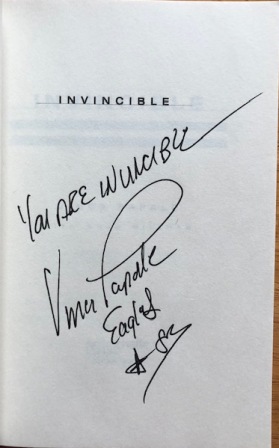 INVINCIBLE
You ARE INVINCIBLE
Vince Papale
Eagles